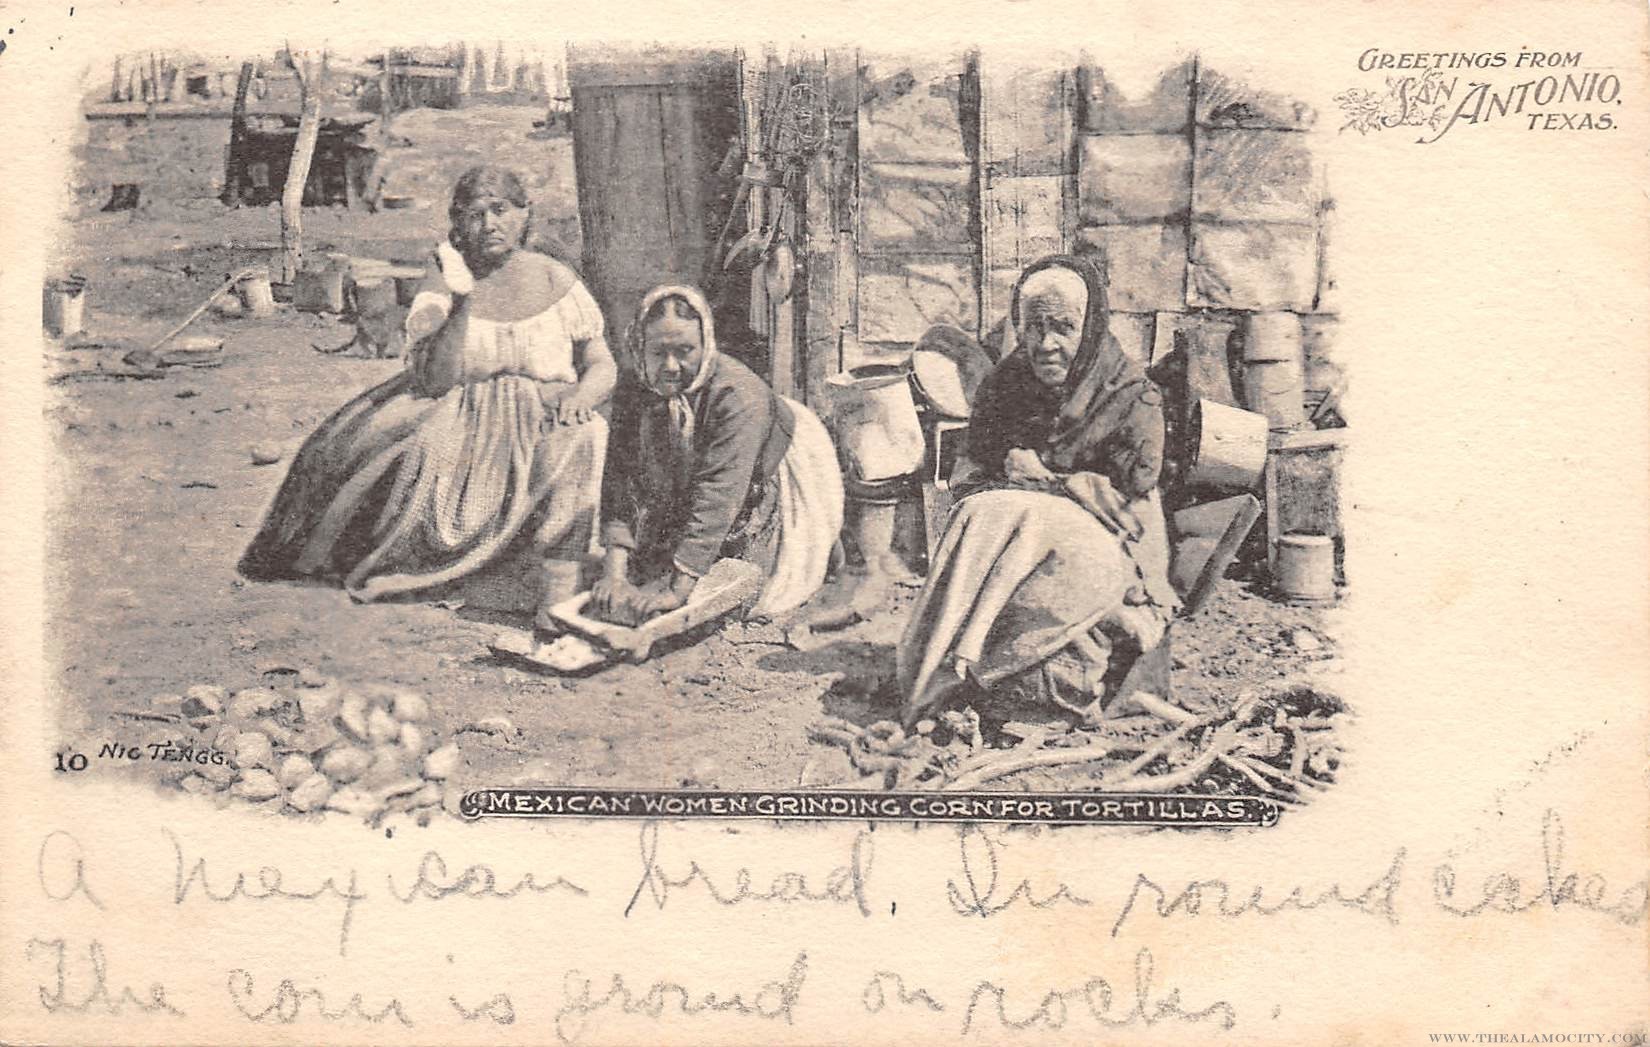 GREETINGS FROM
SAN ANTONIO,
TEXAS.
10 NIC TENGG.
MEXICAN WOMEN GRINDING CORN FOR TORTILLAS.
A Mexican bread. In round cakes
The corn is ground on rocks.
WWW.THEALAMOCITY.COM